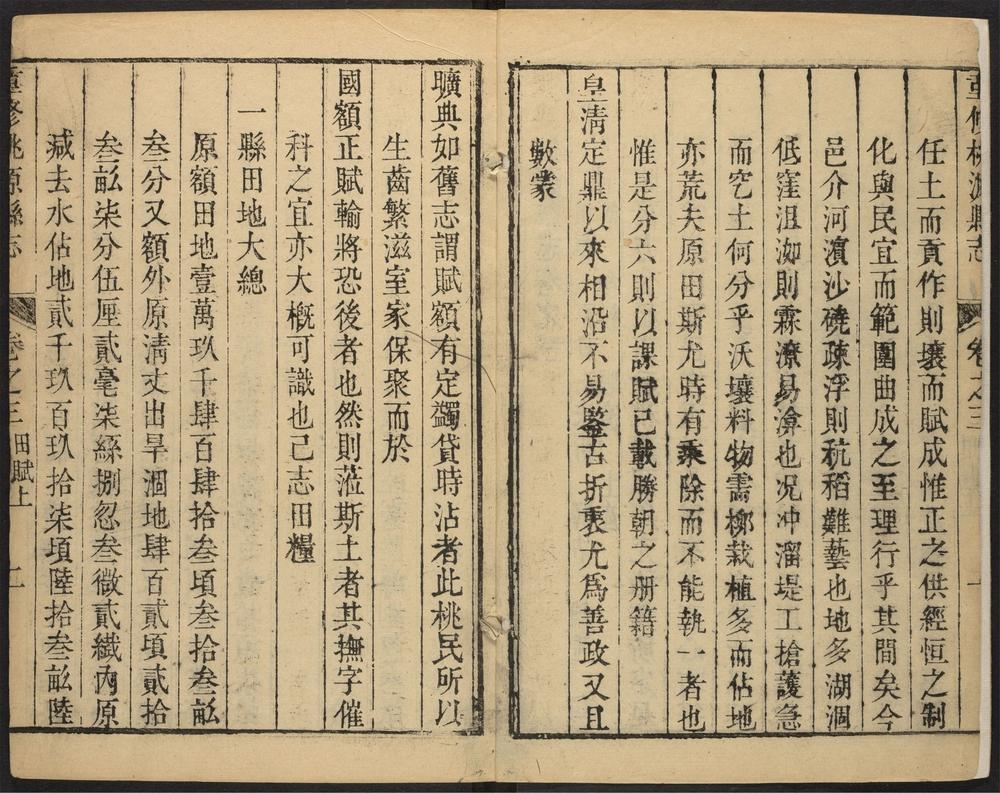 重修桃源縣志
卷之三
任土而貢作則壤而賦成惟正之供經恒之制
化與民宜而範圍曲成之至理行乎其間矣今
邑介河濵沙磽疎浮則秔稻難藝也地多湖涸
低窪沮洳則霖潦易渰也况冲溜堤工搶護急
而穵土何分乎沃壤料物需柳栽植多而佔地
亦荒夫原田斯尤時有乘除而不能執一者也
惟是分六則以課賦已載勝朝之册籍
皇淸定鼎以來相沿不易鑒古折衷尤爲善政又且
數蒙
曠典如舊志謂賦額有定蠲貸時沾者此桃民所以
生齒繁滋室家保聚而於
國額正賦輸將恐後者也然則蒞斯土者其撫字催
科之宜亦大槪可識也已志田糧
一縣田地大總
原額田地壹萬玖千肆百肆拾叁頃叁拾叁畝
叁分又額外原淸丈出旱涸地肆百貳頃貳拾
叁畝柒分伍厘貳毫柒絲捌忽叁微貳纎內原
減去水佔地貳千玖百玖拾柒頃陸拾叁畝陸
重修桃源縣志
卷之三 田賦上 二